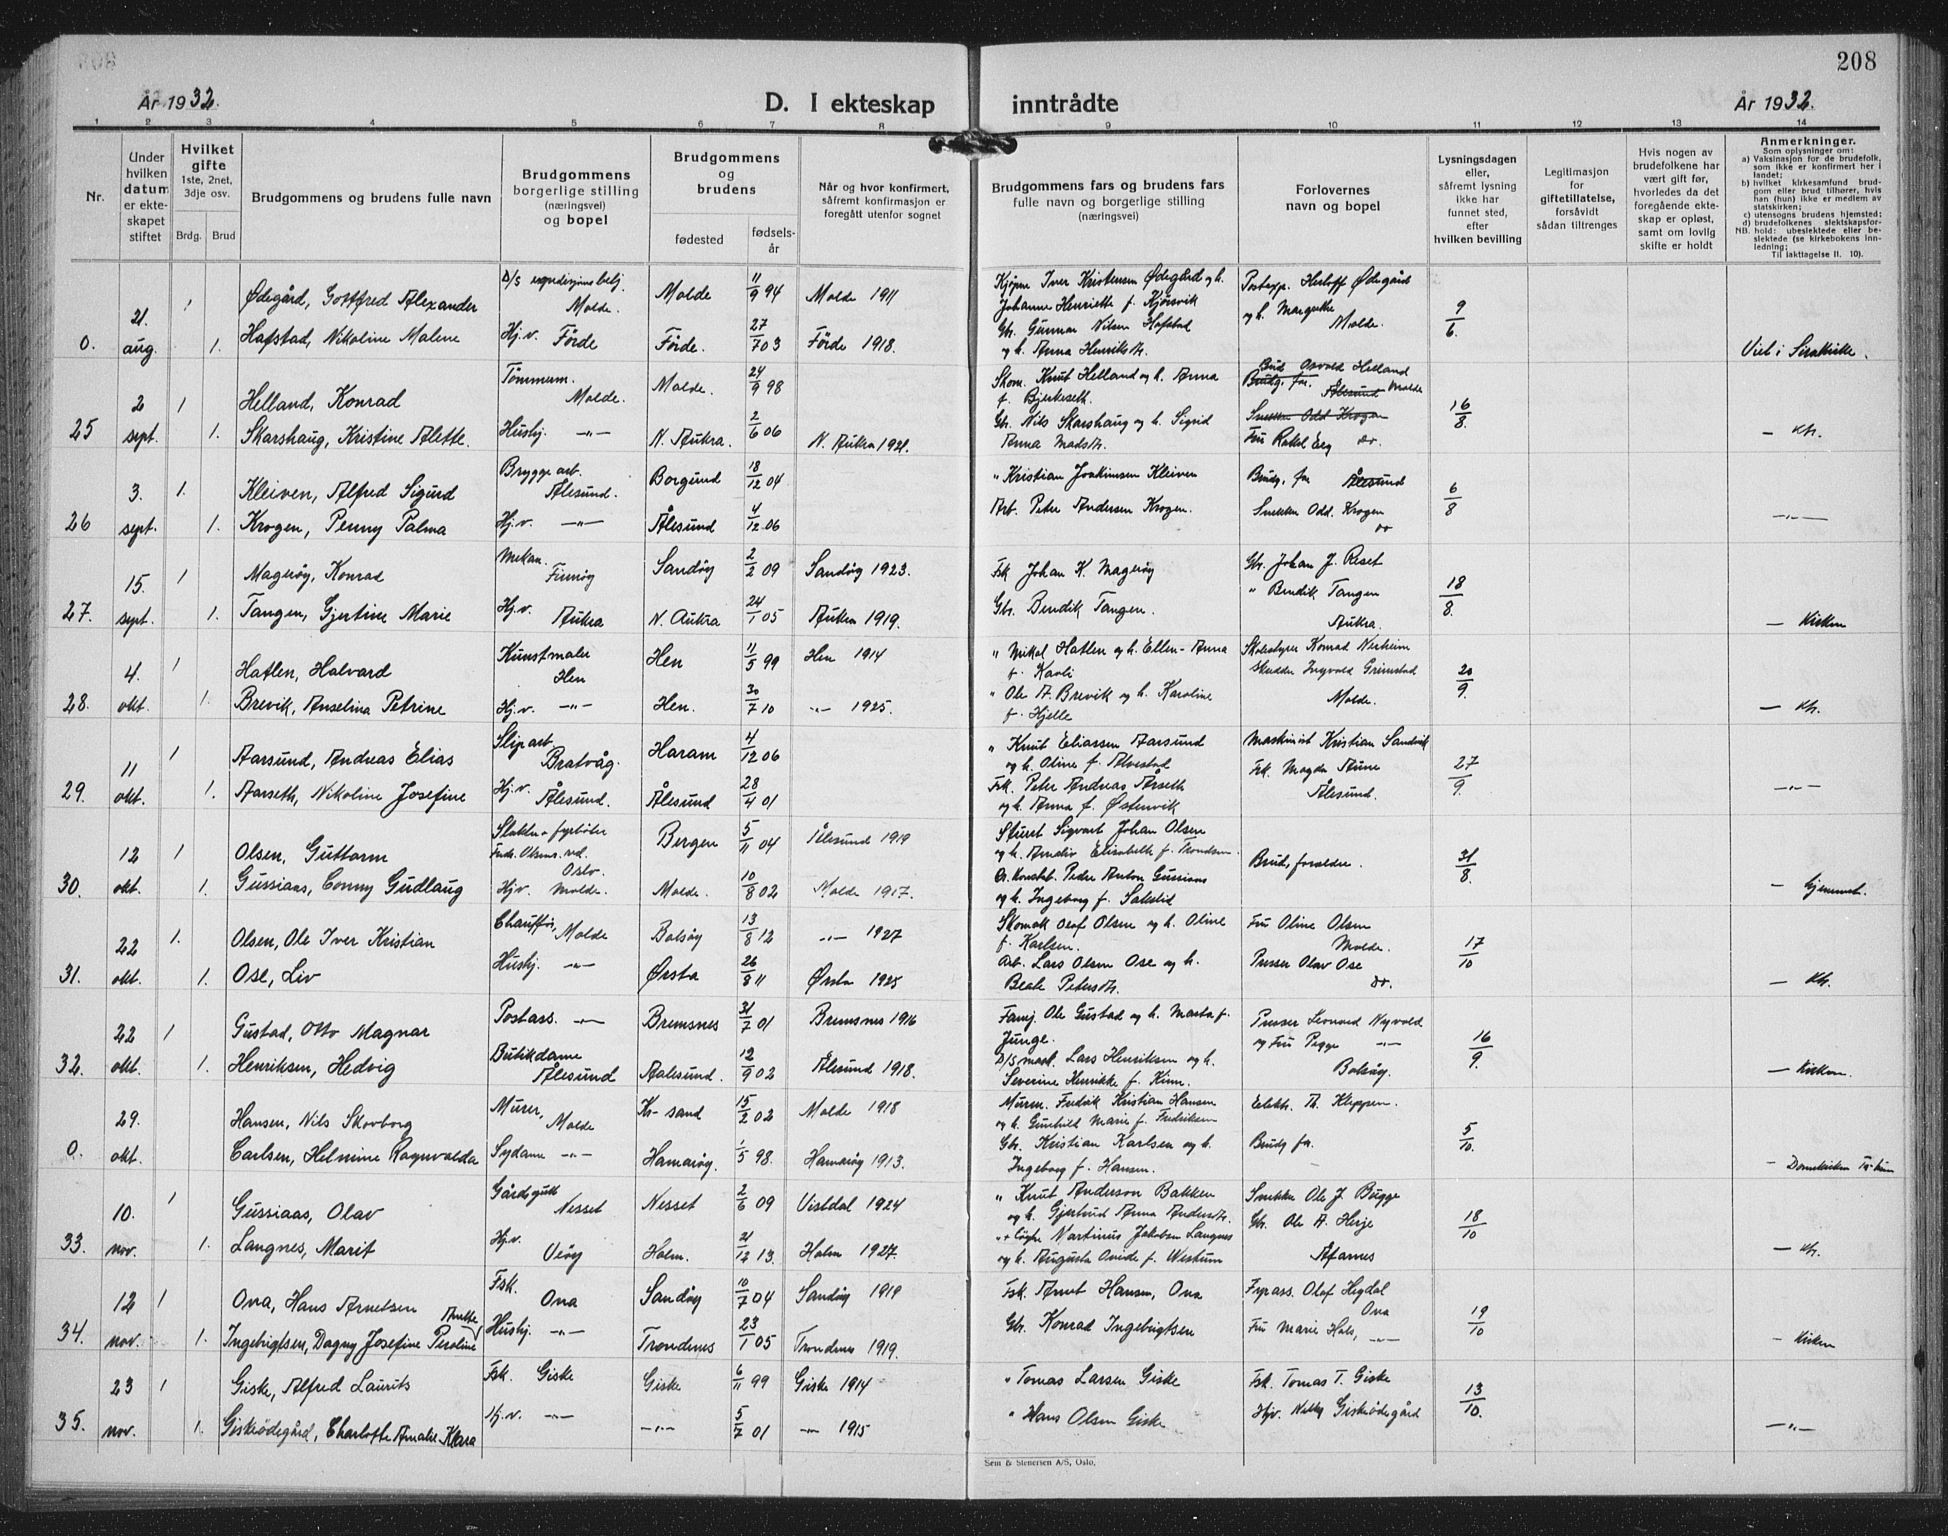 208
År 1932.
D. I ekteskap inntrådte
År 1932.
1 2 3 4 5 6 7 8 9 10 11 12 13 14
Nr.
Under hvilken datum er ekteskapet stiftet
Hvilket gifte 1ste, 2net, 3dje osv.
Brdg. Brud
Brudgommens og brudens fulle navn
Brudgommens borgerlige stilling (næringsvei) og bopel
Brudgommens og brudens
fødested
fødselsår
Når og hvor konfirmert, såfremt konfirmasjon er foregått utenfor sognet
Brudgommens fars og brudens fars fulle navn og borgerlige stilling (næringsvei)
Forlovernes navn og bopel
Lysningsdagen eller, såfremt lysning ikke har funnet sted, efter hvilken bevilling
Legitimasjon for giftetillatelse, forsåvidt sådan tiltrenges
Hvis nogen av brudefolkene har vært gift før, hvorledes da det foregående ekteskap er opløst, samt om lovlig skifte er holdt
Anmerkninger.
Som oplysninger om:
a) Vaksinasjon for de brudefolk, som ikke er konfirmert her i landet;
b) hvilket kirkesamfund brudgom eller brud tilhører, hvis han (hun) ikke er medlem av statskirken;
c) utensogns brudens hjemsted;
d) brudefolkenes slektskapsforhold: ubeslektede eller beslektede (se kirkebokens innledning;
NB. Til iakttagelse II. 10).
21. 1 Ødegård, Gottfred Alexander D/S expedisjonsbetj. Molde. Molde 11/9 94 Molde 1911 Iver Kristensen Ødegård og h. Johanne Henriette f. Kjørsvik Postexp. Herloff Ødegård og h. Margrethe Molde. 9/6
0. aug. 1. Hafstad, Nikoline Malene Hj.v. Förde Förde. 27/7 03 Förde 1918. Gbr. Gunnar Nilsen Hafstad og h. Anna Henriksdtr. Viet i Sirakirke.
2 1 Helland, Konrad Tömmerm. Molde. Molde. 24/9 98 Skom. Knut Helland og h. Anna f. Bjerkeseth. Brud Osvald Helland Molde Brudg. far. Ålesund 16/8.
25 sept. 1. Skarshaug, Kristine Alette. Hushj. -"- N. Aukra. 2/6 06 N. Aukra 1921. Gbr. Nils Skarshaug og h. Sigrid Anna Madsdtr. Snekker Odd Krogen Fru Rakel Eeg do. - Ktr.
3. 1. Kleiven, Alfred Sigurd Bryggearb. Ålesund. Borgund 18/12 04 " Kristian Joakimsen Kleiven Brudg. far Ålesund 6/8
26 sept. 1. Krogen, Penny Palma Hj.v. -"- Ålesund 4/12 06 Arb. Peter Andersen Krogen. Snekker Odd. Krogen do -"-
15. 1 Magerøy, Konrad Mekan. Finnøy Sandøy 2/2 09 Sandøy 1923. Fsk Johan K. Magerøy Gbr. Johan J. Reset 18/8.
27. sept. 1. Tangen, Gjertine Marie Hj.v. Aukra N. Aukra 24/1 05 Aukra 1919. Gbr. Bendik Tangen. " Bendik Tangen Aukra. - Kirken
4. 1 Hatlen, Halvard Kunstmaler Hen Hen 11/5 99 Hen 1914 " Mikal Hatlen og h. Ellen-Anna f. Kavli Skolestyrer Konrad Nerheim Skredder Ingvald Grimstad Molde. 20/9.
28. okt. 1. Brevik, Anselina Petrine Hj.v. -"- Hen. 30/7 10 -"- 1925. " Ole A. Brevik og h. Karoline f. Hjelle - Ktr.
11 1 Aarsund, Andreas Elias Sliparb. Bratvåg. Haram 4/12 06 " Knut Eliassen Aarsund og h. Oline f. Alvestad Maskinist Kristian Sandvik 27/9.
29. okt. 1. Aarseth, Nikoline Josefine Hj.v. Ålesund. Ålesund 28/4 01 Fsk. Peter Andreas Årseth og h. Anna f. Østenvik Frk. Magda Aune Ålesund. -"-
12 1 Olsen, Guttorm Oslo. Bergen 5/11 04 Ålesund 1919 Stuert Sigvart Johan Olsen og h. Amalie Elisabeth f. Trondsen. Brud, foreldre. 31/8.
30. okt. 1. Gussiaas, Conny Gudlaug Hj.v. Molde. Molde. 10/8 02 Molde 1917. Peder Anton Gussiaas og h. Ingeborg f. - hjemmet.
22 1. Olsen, Ole Iver Kristian Chauffør, Molde Bolsøy 13/8 12 -"- 1927 Skomak. Olaf Olsen og h. Oline f. Karlsen. Fru Oline Olsen Molde. 17/10
31. okt. 1. Ose, Liv Hushj. -"- Ørsta 26/8 11 Ørsta 1925 Arb. Lars Olsen Ose og h. Beate Petersdtr. Presser Olav Ose do. - Ktr.
22 1 Gustad, Otto Magnar Postass. -"- Bremsnes 31/7 01 Bremsnes 1916 Ole Gustad og h. Marta f. Junge. Presser Leonard Nyvold og Fru Pegge -"- 16/9.
32. okt. 1. Henriksen, Hedvig Butikdame Ålesund Aalesund. 12/9 02 Ålesund 1918. D/S mask. Lars Henriksen og h. Severine Henrikke f. Kinn. Bolsøy. - Kirken.
29. Hansen, Nils Skovborg Murer, Molde Kr-sand 15/2 02 Molde 1918 Murm. Fredrik Kristian Hansen og h. Gunhild Marie f. Fredriksen Elektr. Th. Kleppen. 5/10.
0. okt. Carlsen, Helmine Ragnvalda Sydame -"- Hamarøy. 1/5 98. Hamarøy 1913. Gbr. Kristian Karlsen og h. Ingeborg f. Hansen. Brudg far. - Domkirken Tr.heim
10. 1 Gussiaas, Olav Gårdsgutt Nesset Nesset 2/6 09 Vistdal 1924 " Knut Anderson Bakken og h. Gjertrud Anna Andersdtr. Snekker Ole J. Bugge 18/10
33. nov. 1. Langnes, Marit Hj.v. Veøy Holm. 21/12 13. Holm 1927. Martinus Jakobsen Langnes og h. Augusta Ovide f. Westum Gbr. Ole A. Herje Åfarnes - Ktr.
12 1 Ona, Hans Arnetsen Fsk. Ona Sandøy 10/7 04 Sandøy 1919 Fsk. Arnet Hansen, Ona Fyrass. Olaf Hegdal Ona 19/10
34. nov. 1. Ingebrigtsen, Dagny Josefine Anette Peroline Hushj. -"- Trondenes 23/1 05 Trondenes 1919. Gbr. Konrad Ingebrigtsen Fru Marie Hals, -"- - Kirken
23 1 Giske, Alfred Laurits Fsk. Giske Giske 6/11 99 Giske 1914 " Tomas Larsen Giske Fsk. Tomas T. Giske 13/10.
35. nov. 1. Giskeødegård, Charlotte Amalie Klara Hj.v. -"- -"- 5/7 01 -"- 1915 " Hans Olsen Giske Hjv. Nelly Giskeødegård -"-
Sem & Stenersen A/S, Oslo.